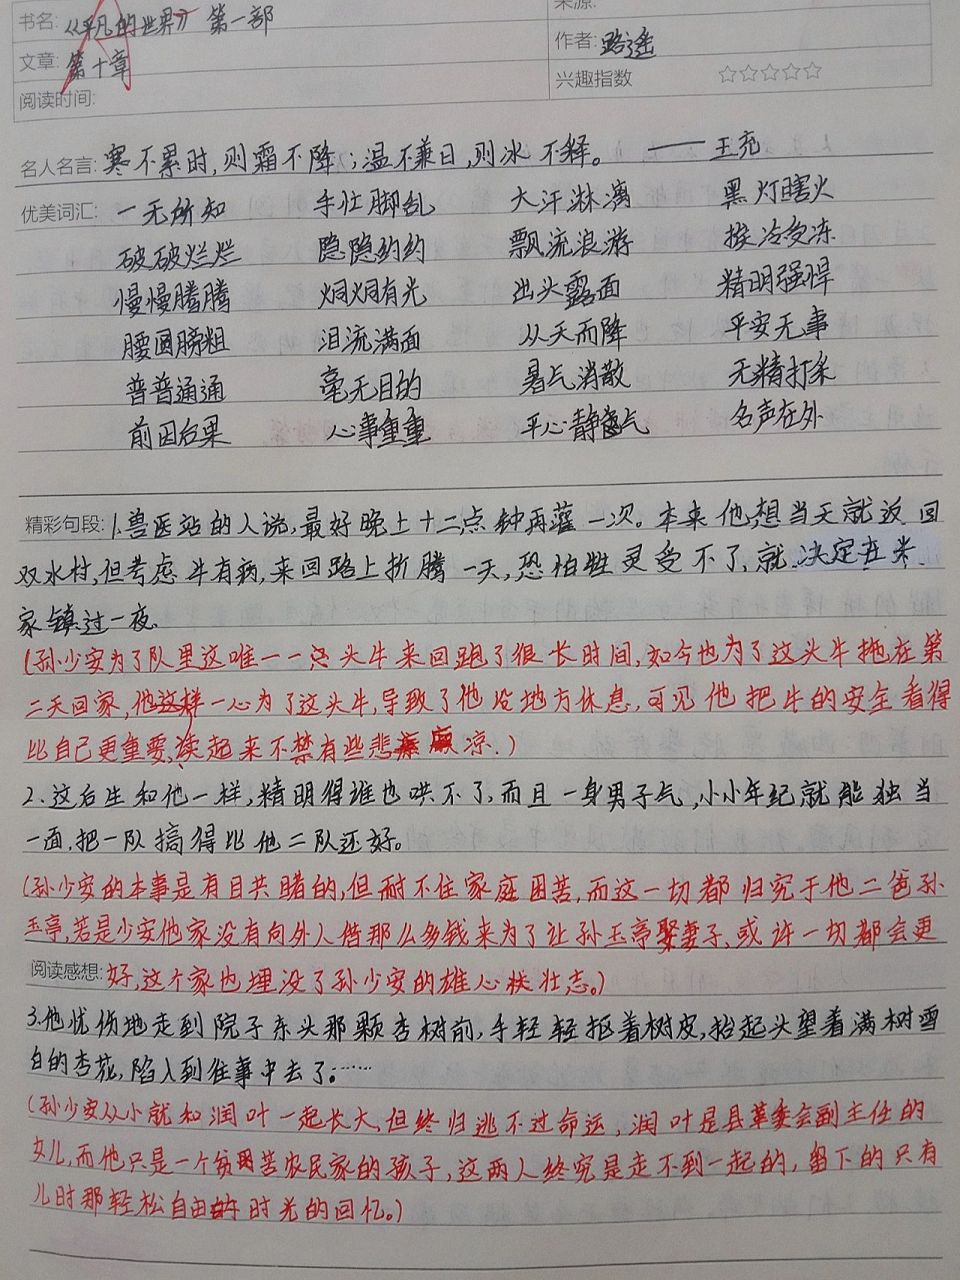 书名:《平凡的世界》第一部
来源:
文章:第十章
作者:路遥
阅读时间:
兴趣指数 ☆☆☆☆☆
名人名言:寒不累时,则霜不降;温不兼日,则冰不释。 ——王充
优美词汇:一无所知 手忙脚乱 大汗淋漓 黑灯瞎火
破破烂烂 隐隐约约 飘流浪游 挨冷受冻
慢慢腾腾 炯炯有光 出头露面 精明强悍
腰圆膀粗 泪流满面 从天而降 平安无事
普普通通 毫无目的 暑气消散 无精打采
前因后果 心事重重 平心静气 名声在外
精彩句段:1.兽医站的人说,最好晚上十二点钟再灌一次。本来他想当天就返回
双水村,但考虑牛有病,来回路上折腾一天,恐怕牲灵受不了,就决定在米
家镇过一夜.
(孙少安为了队里这唯一一头牛来回跑了很长时间,如今也为了这头牛拖在第
二天回家,他这样一心为了这头牛,导致了他没地方休息,可见他把牛的安全看得
比自己更重要,读起来不禁有些悲凉.)
2.这后生和他一样,精明得谁也哄不了,而且一身男子气,小小年纪就能独当
一面,把一队搞得比他二队还好。
(孙少安的本事是有目共睹的,但耐不住家庭困苦,而这一切都归究于他二爸孙
玉亭,若是少安他家没有向外人借那么多钱来为了让孙玉亭娶妻子,或许一切都会更
阅读感想:好,这个家也埋没了孙少安的雄心壮志。)
3.他忧伤地走到院子东头那颗杏树前,手轻轻抠着树皮,抬起头望着满树雪
白的杏花,陷入到往事中去了……
(孙少安从小就和润叶一起长大,但终归逃不过命运,润叶是县革委会副主任的
女儿,而他只是一个贫困苦农民家的孩子,这两人终究是走不到一起的,留下的只有
儿时那轻松自由的时光的回忆。)